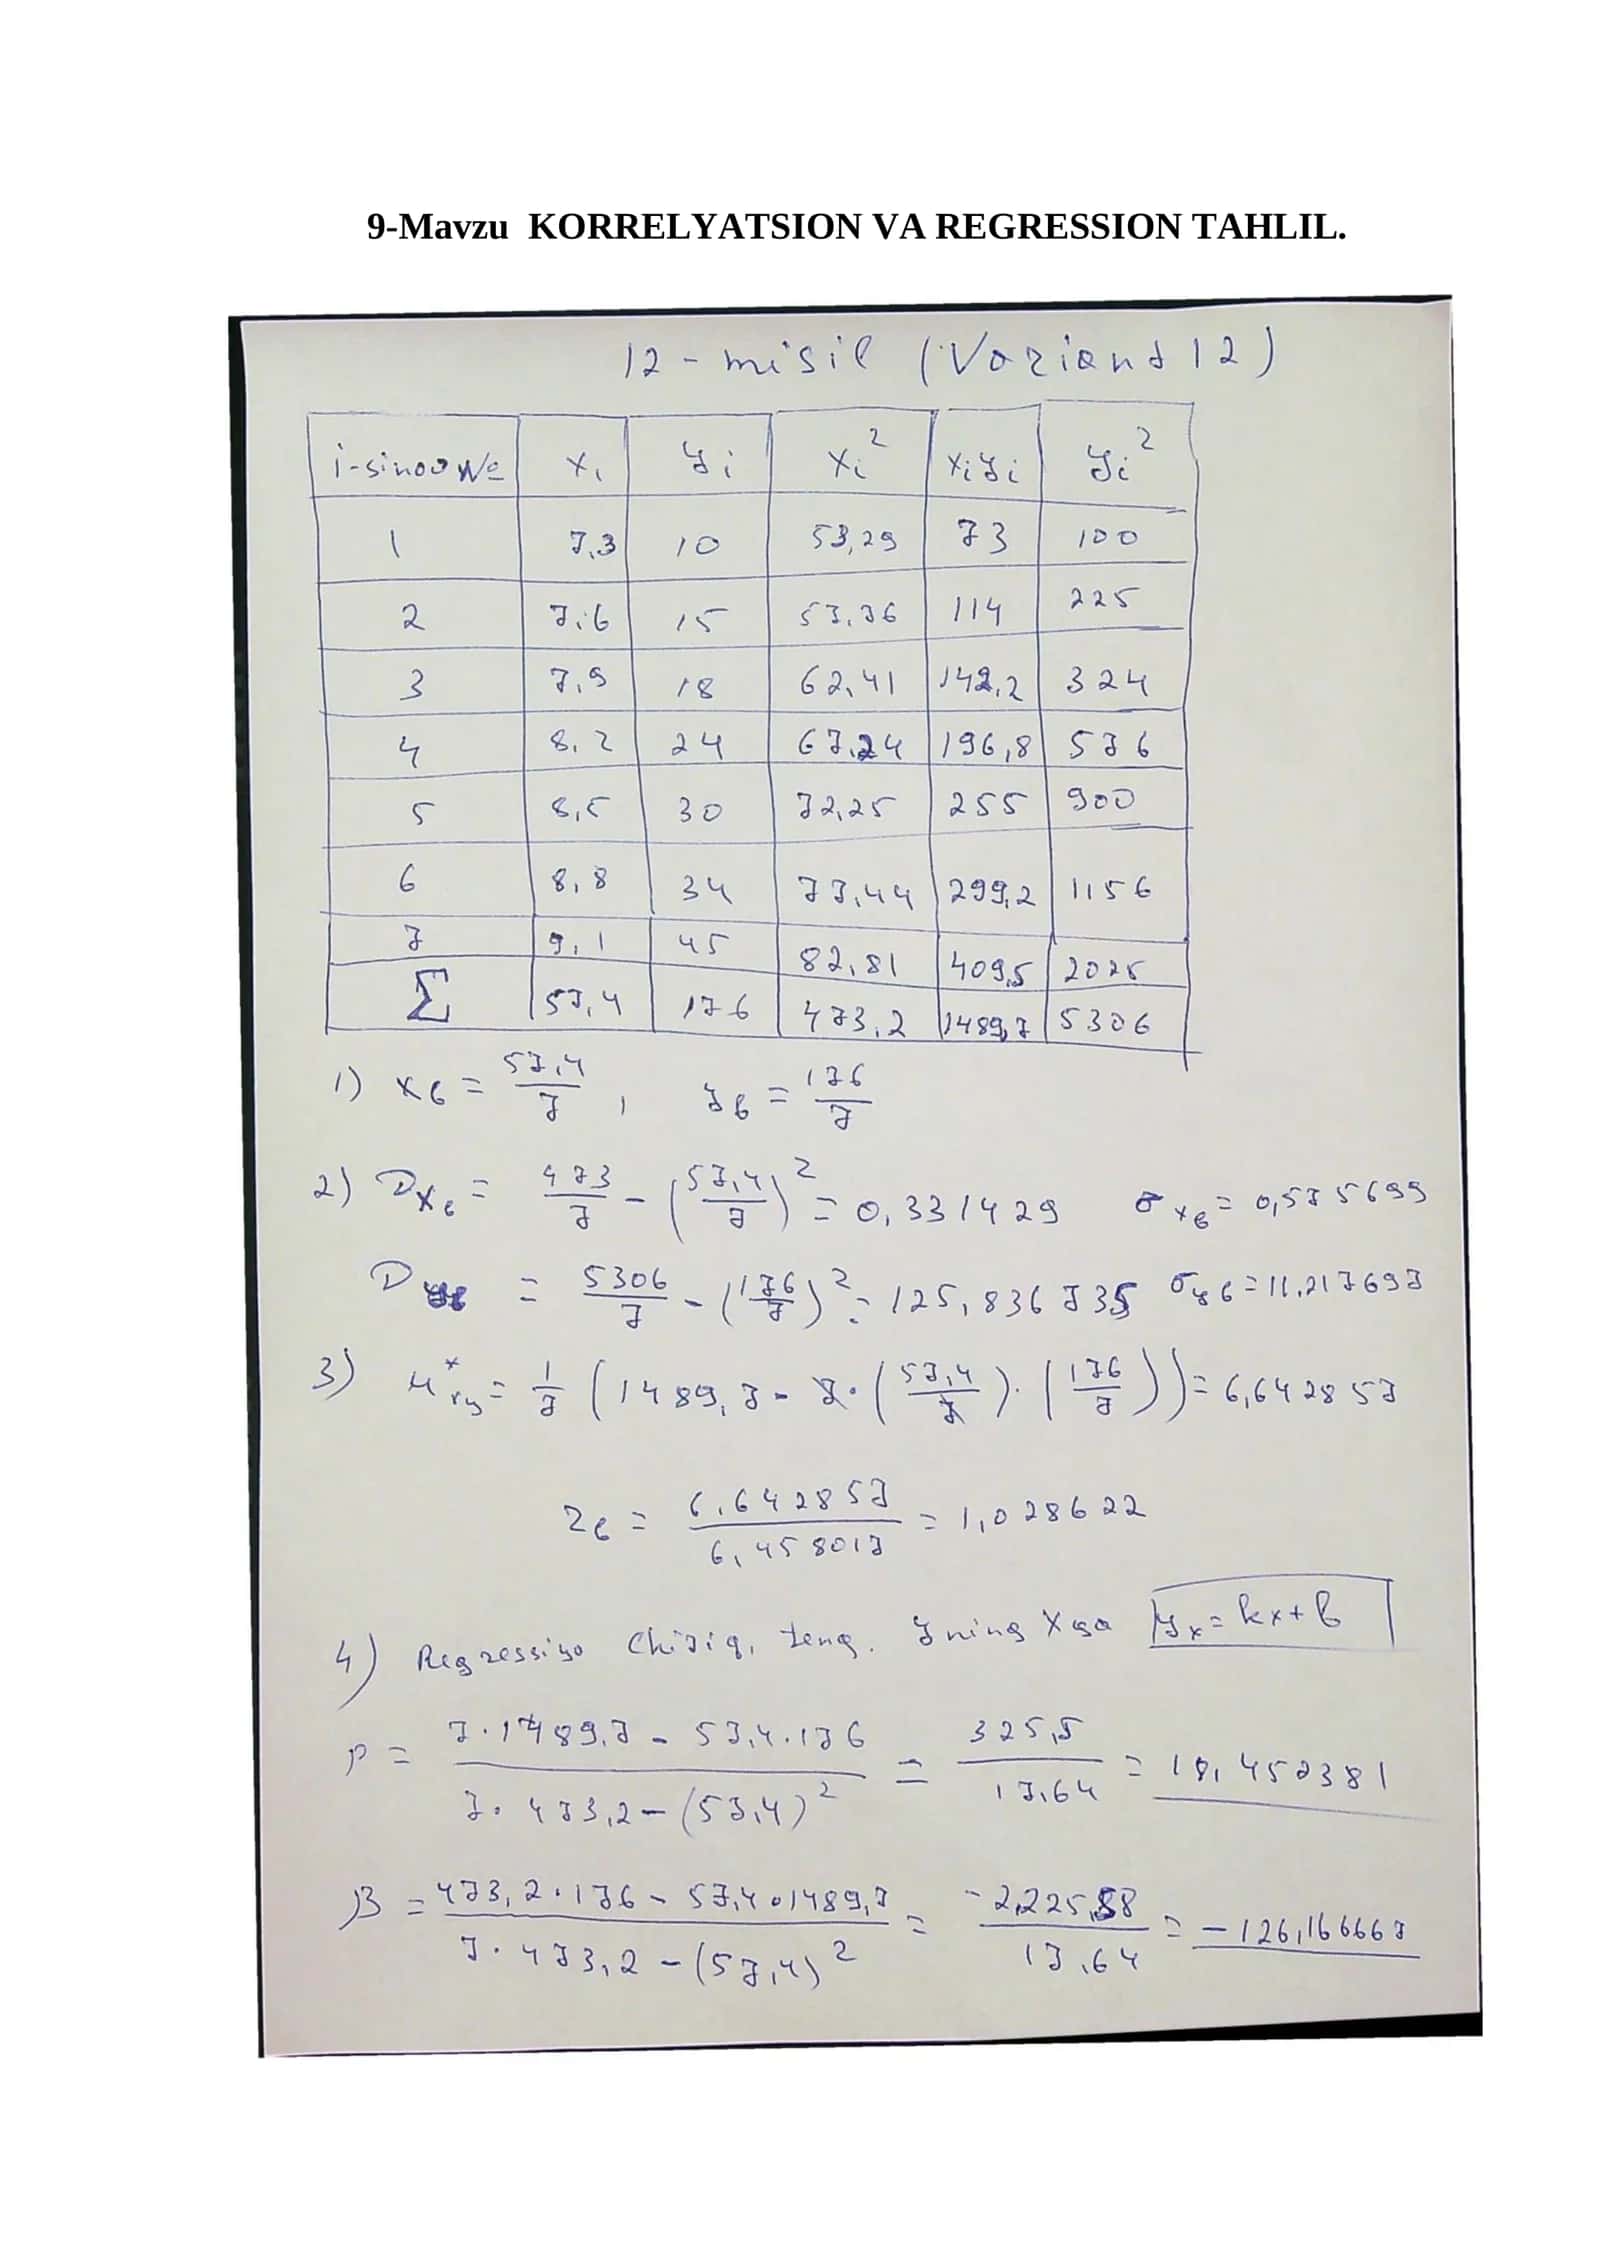 9-Mavzu KORRELYATSION VA REGRESSION TAHLIL.
12-misil (Variand 12)
i-sinov № xi yi xi² xiyi yi²
1 7,3 10 53,29 73 100
2 7,6 15 57,76 114 225
3 7,9 18 62,41 142,2 324
4 8,2 24 67,24 196,8 576
5 8,5 30 72,25 255 900
6 8,8 34 77,44 299,2 1156
7 9,1 45 82,81 409,5 2025
Σ 57,4 176 473,2 1489,7 5306
1) xв = 57,4/7 , yв = 176/7
2) Dxв = 473/7 - (57,4/7)² = 0,331429 σxв = 0,575699
Dyв = 5306/7 - (176/7)² = 125,836735 σyв = 11,217697
3) μ*xy = 1/7 (1489,7 - 7·(57,4/7)·(176/7)) = 6,642857
rв = 6,642857/6,458017 = 1,028622
4) Regressiya Chiziq. teng. y ning x ga yx = kx+b
p = (7·1489,7 - 57,4·176)/(7·473,2 - (57,4)²) = 325,5/17,64 = 18,452381
β = (473,2·176 - 57,4·1489,7)/(7·473,2 - (57,4)²) = -2225,58/17,64 = -126,166667